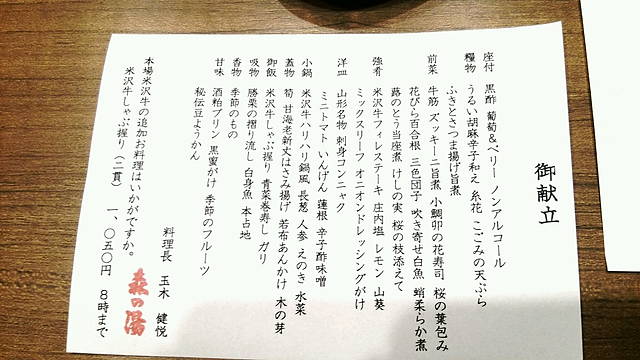 御献立
座付 黒酢 葡萄&ベリー ノンアルコール
糧物 うるい胡麻辛子和え 糸花 こごみの天ぷら
ふきとさつま揚げ旨煮
前菜 牛筋 ズッキーニ旨煮 小鯛卯の花寿司 桜の葉包み
花びら百合根 三色団子 吹き寄せ白魚 蛸柔らか煮
蕗のとう当座煮 けしの実 桜の枝添えて
強肴 米沢牛フィレステーキ 庄内塩 レモン 山葵
ミックスリーフ オニオンドレッシングがけ
洋皿 山形名物 刺身コンニャク
ミニトマト いんげん 蓮根 辛子酢味噌
小鍋 米沢牛ハリハリ鍋風 長葱 人参 えのき 水菜
蓋物 筍 甘海老新丈はさみ揚げ 若布あんかけ 木の芽
御飯 米沢牛しゃぶ握り 青菜巻寿し ガリ
吸物 勝栗の摺り流し 白身魚 本占地
香物 季節のもの
甘味 酒粕プリン 黒蜜がけ 季節のフルーツ
秘伝豆ようかん
料理長 玉木 健悦
森の湯
本場米沢牛の追加お料理はいかがですか。
米沢牛しゃぶ握り(二貫) 一、〇五〇円 8時まで